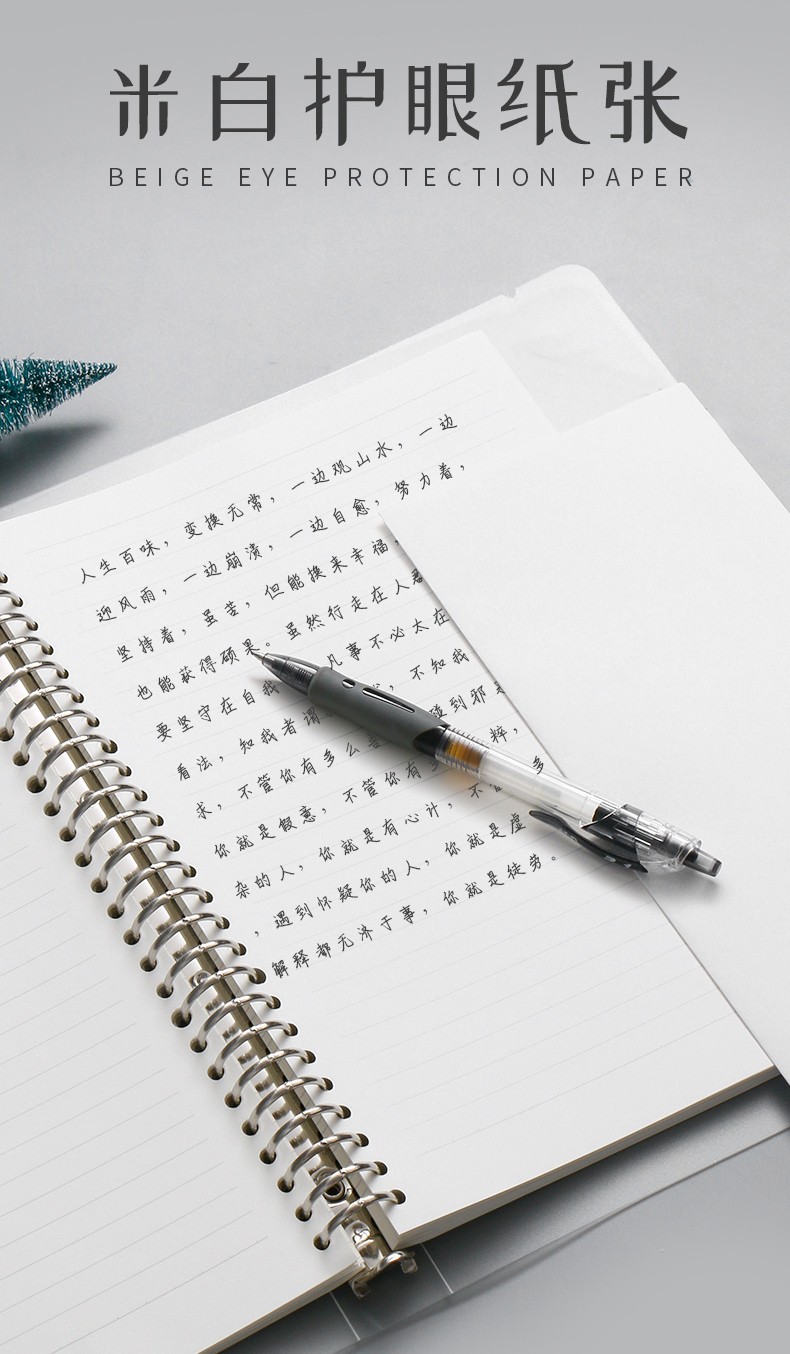 米白护眼纸张
BEIGE EYE PROTECTION PAPER
人生百味，变换无常，一边观山水，一边
迎风雨，一边崩溃，一边自愈，努力着，
坚持着，虽苦，但能换来幸福，
也能获得硕果。虽然行走在人
要坚守在自我 凡事不必太在
看法，知我者谓 ，不知我
求，不管你有多么 碰到邪
你就是假意，不管你有 粹，
杂的人，你就是有心计，不 多
，遇到怀疑你的人，你就是虚
解释都无济于事，你就是徒劳。